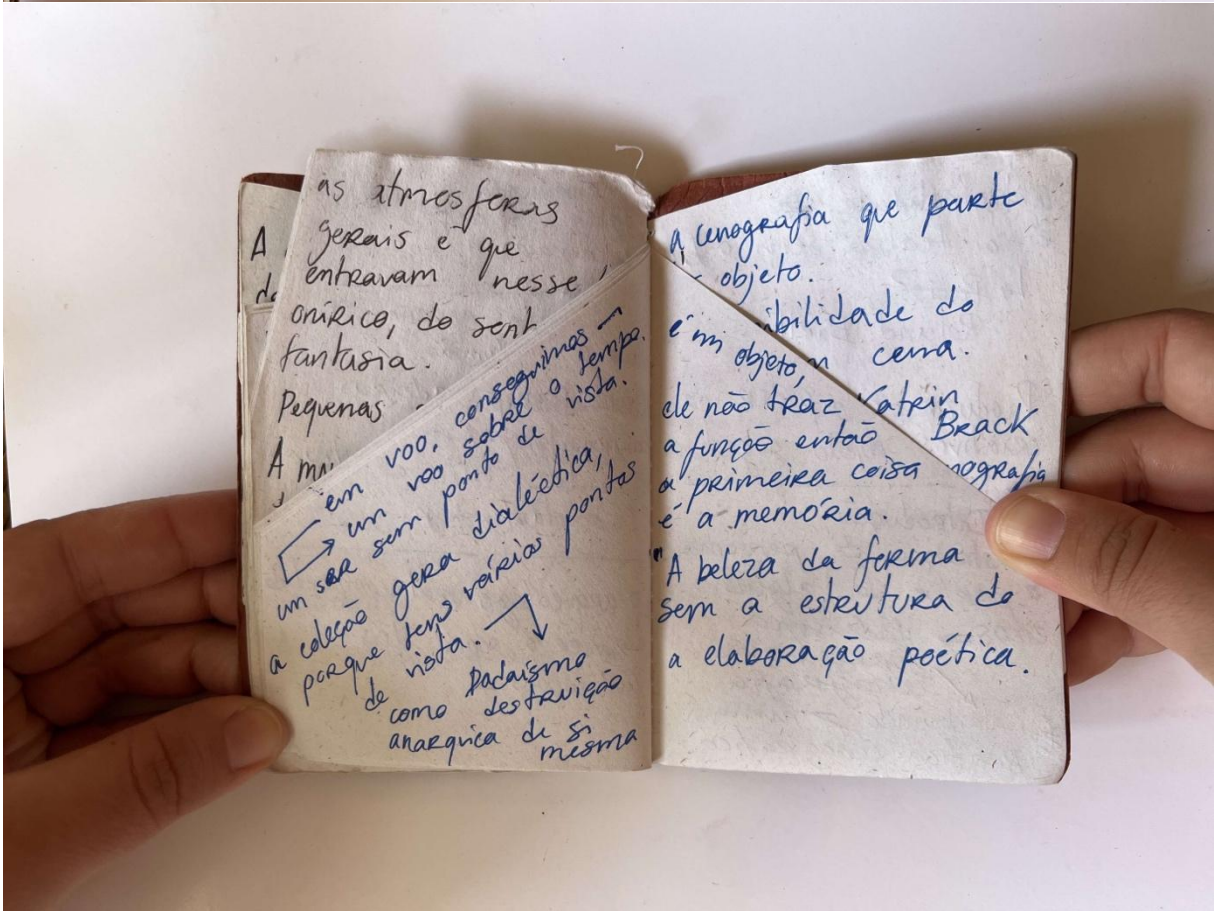 A
as atmosferas
gerais é que
entravam nesse
onírico, do sent
fantasia.
Pequenas
A mu
em voo, conseguimos
um voo sobre o tempo.
um ser sem ponto de vista.
a coleção gera dialéctica,
porque tens vários pontos
de vista.
Dadaísmo
como destruição
anarquica de si
mesma
a cenografia que parte
objeto.
ibilidade do
é um objeto, cena.
ele não traz Katrin
a função então Brack
a primeira coisa nografia
é a memória.
"A beleza da forma
sem a estrutura do
a elaboração poética.